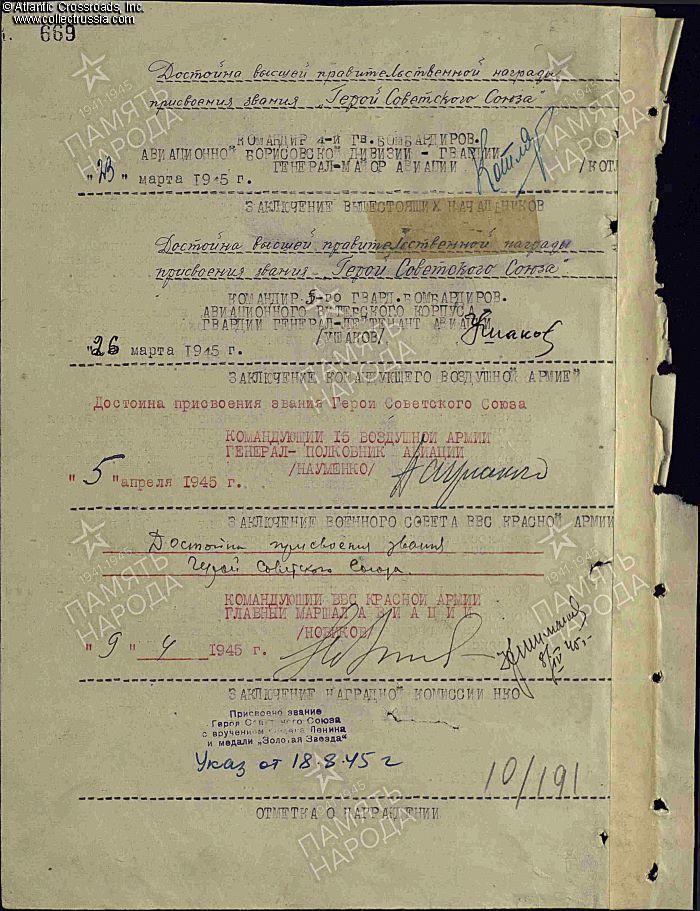 © Atlantic Crossroads, Inc.
www.collectrussia.com
669
Достойна высшей правительственной награды
присвоения звания „Герой Советского Союза"
КОМАНДИР 4-й ГВ. БОМБАРДИРОВ.
АВИАЦИОННОЙ БОРИСОВСКОЙ ДИВИЗИИ - ГВАРДИИ
ГЕНЕРАЛ-МАЙОР АВИАЦИИ Котляр /КОТЛ
"23" марта 1945 г.
ЗАКЛЮЧЕНИЕ ВЫШЕСТОЯЩИХ НАЧАЛЬНИКОВ
Достойна высшей правительственной награды
присвоения звания „Герой Советского Союза"
КОМАНДИР 5-го ГВАРД. БОМБАРДИРОВ.
АВИАЦИОННОГО ВИТЕБСКОГО КОРПУСА
ГВАРДИИ ГЕНЕРАЛ-ЛЕЙТЕНАНТ АВИАЦИИ
/УШАКОВ/. Ушаков
"26 марта 1945 г.
ЗАКЛЮЧЕНИЕ КОМАНДУЮЩЕГО ВОЗДУШНОЙ АРМИЕЙ
Достоина присвоения звания Герои Советского Союза
КОМАНДУЮЩИЙ 15 ВОЗДУШНОЙ АРМИИ
ГЕНЕРАЛ- ПОЛКОВНИК АВИАЦИИ
/НАУМЕНКО/ Науменко
"5" апреля 1945 г.
ЗАКЛЮЧЕНИЕ ВОЕННОГО СОВЕТА ВВС КРАСНОЙ АРМИИ
Достойна присвоения звания
Герой Советского Союза.
КОМАНДУЮЩИЙ ВВС КРАСНОЙ АРМИИ
ГЛАВНЫЙ МАРШАЛ АВИАЦИИ
/НОВИКОВ/
"9" 4 1945 г.
8/IV 45 г.
ЗАКЛЮЧЕНИЕ НАГРАДНОЙ КОМИССИИ НКО
Присвоено звание
Героя Советского Союза
с вручением ордена Ленина
и медали „Золотая Звезда"
Указ от 18.8.45 г
10/191
ОТМЕТКА О НАГРАЖДЕНИИ
1941-1945
ПАМЯТЬ
НАРОДА